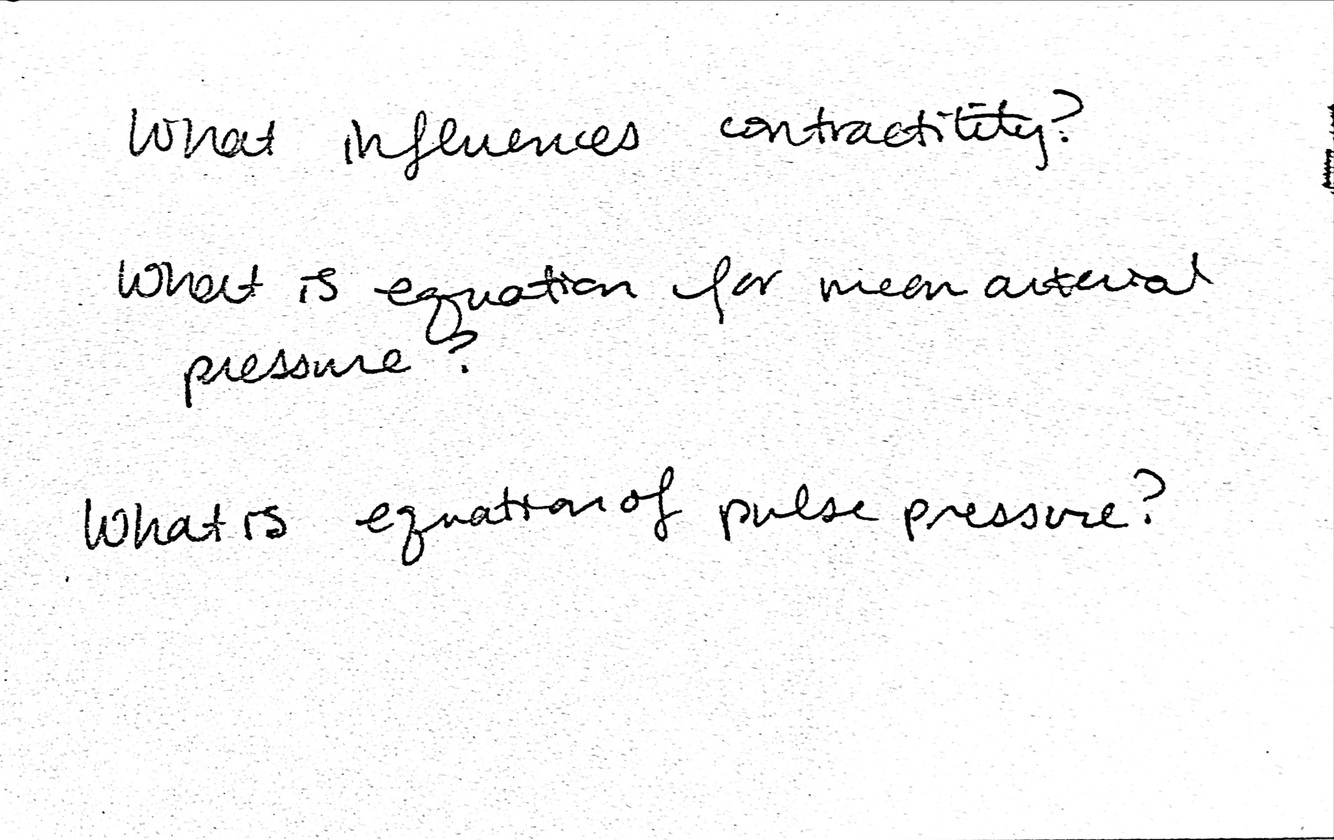 What influences contractility?
What is equation for mean arterial
pressure?
What is equation of pulse pressure?